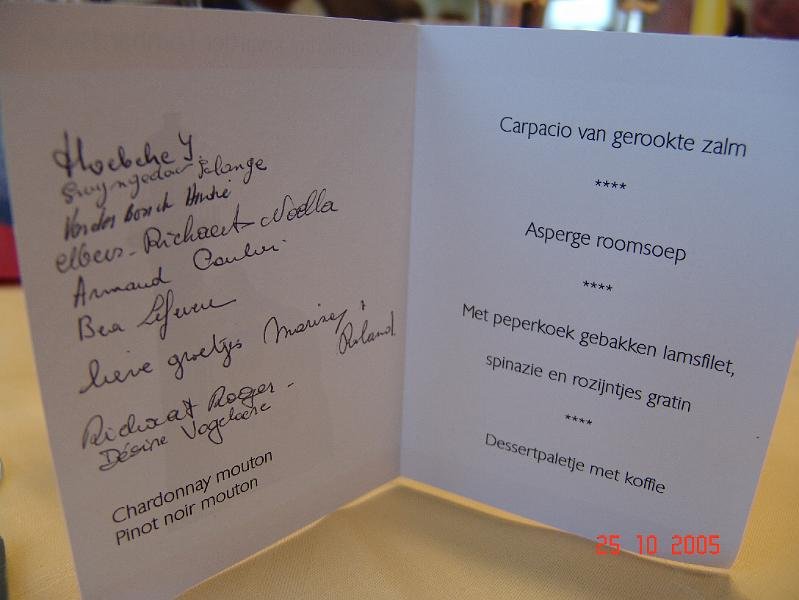 Hoebeke Y.
Solange
Van den Bosch André
Elbers - Richaert Noëlla
Armand
Bea Lefever
lieve groetjes Marisey +
Roland
Richaert Roger -
Désiré Vogelaere
Chardonnay mouton
Pinot noir mouton
Carpacio van gerookte zalm
****
Asperge roomsoep
****
Met peperkoek gebakken lamsfilet,
spinazie en rozijntjes gratin
****
Dessertpaletje met koffie
25 10 2005